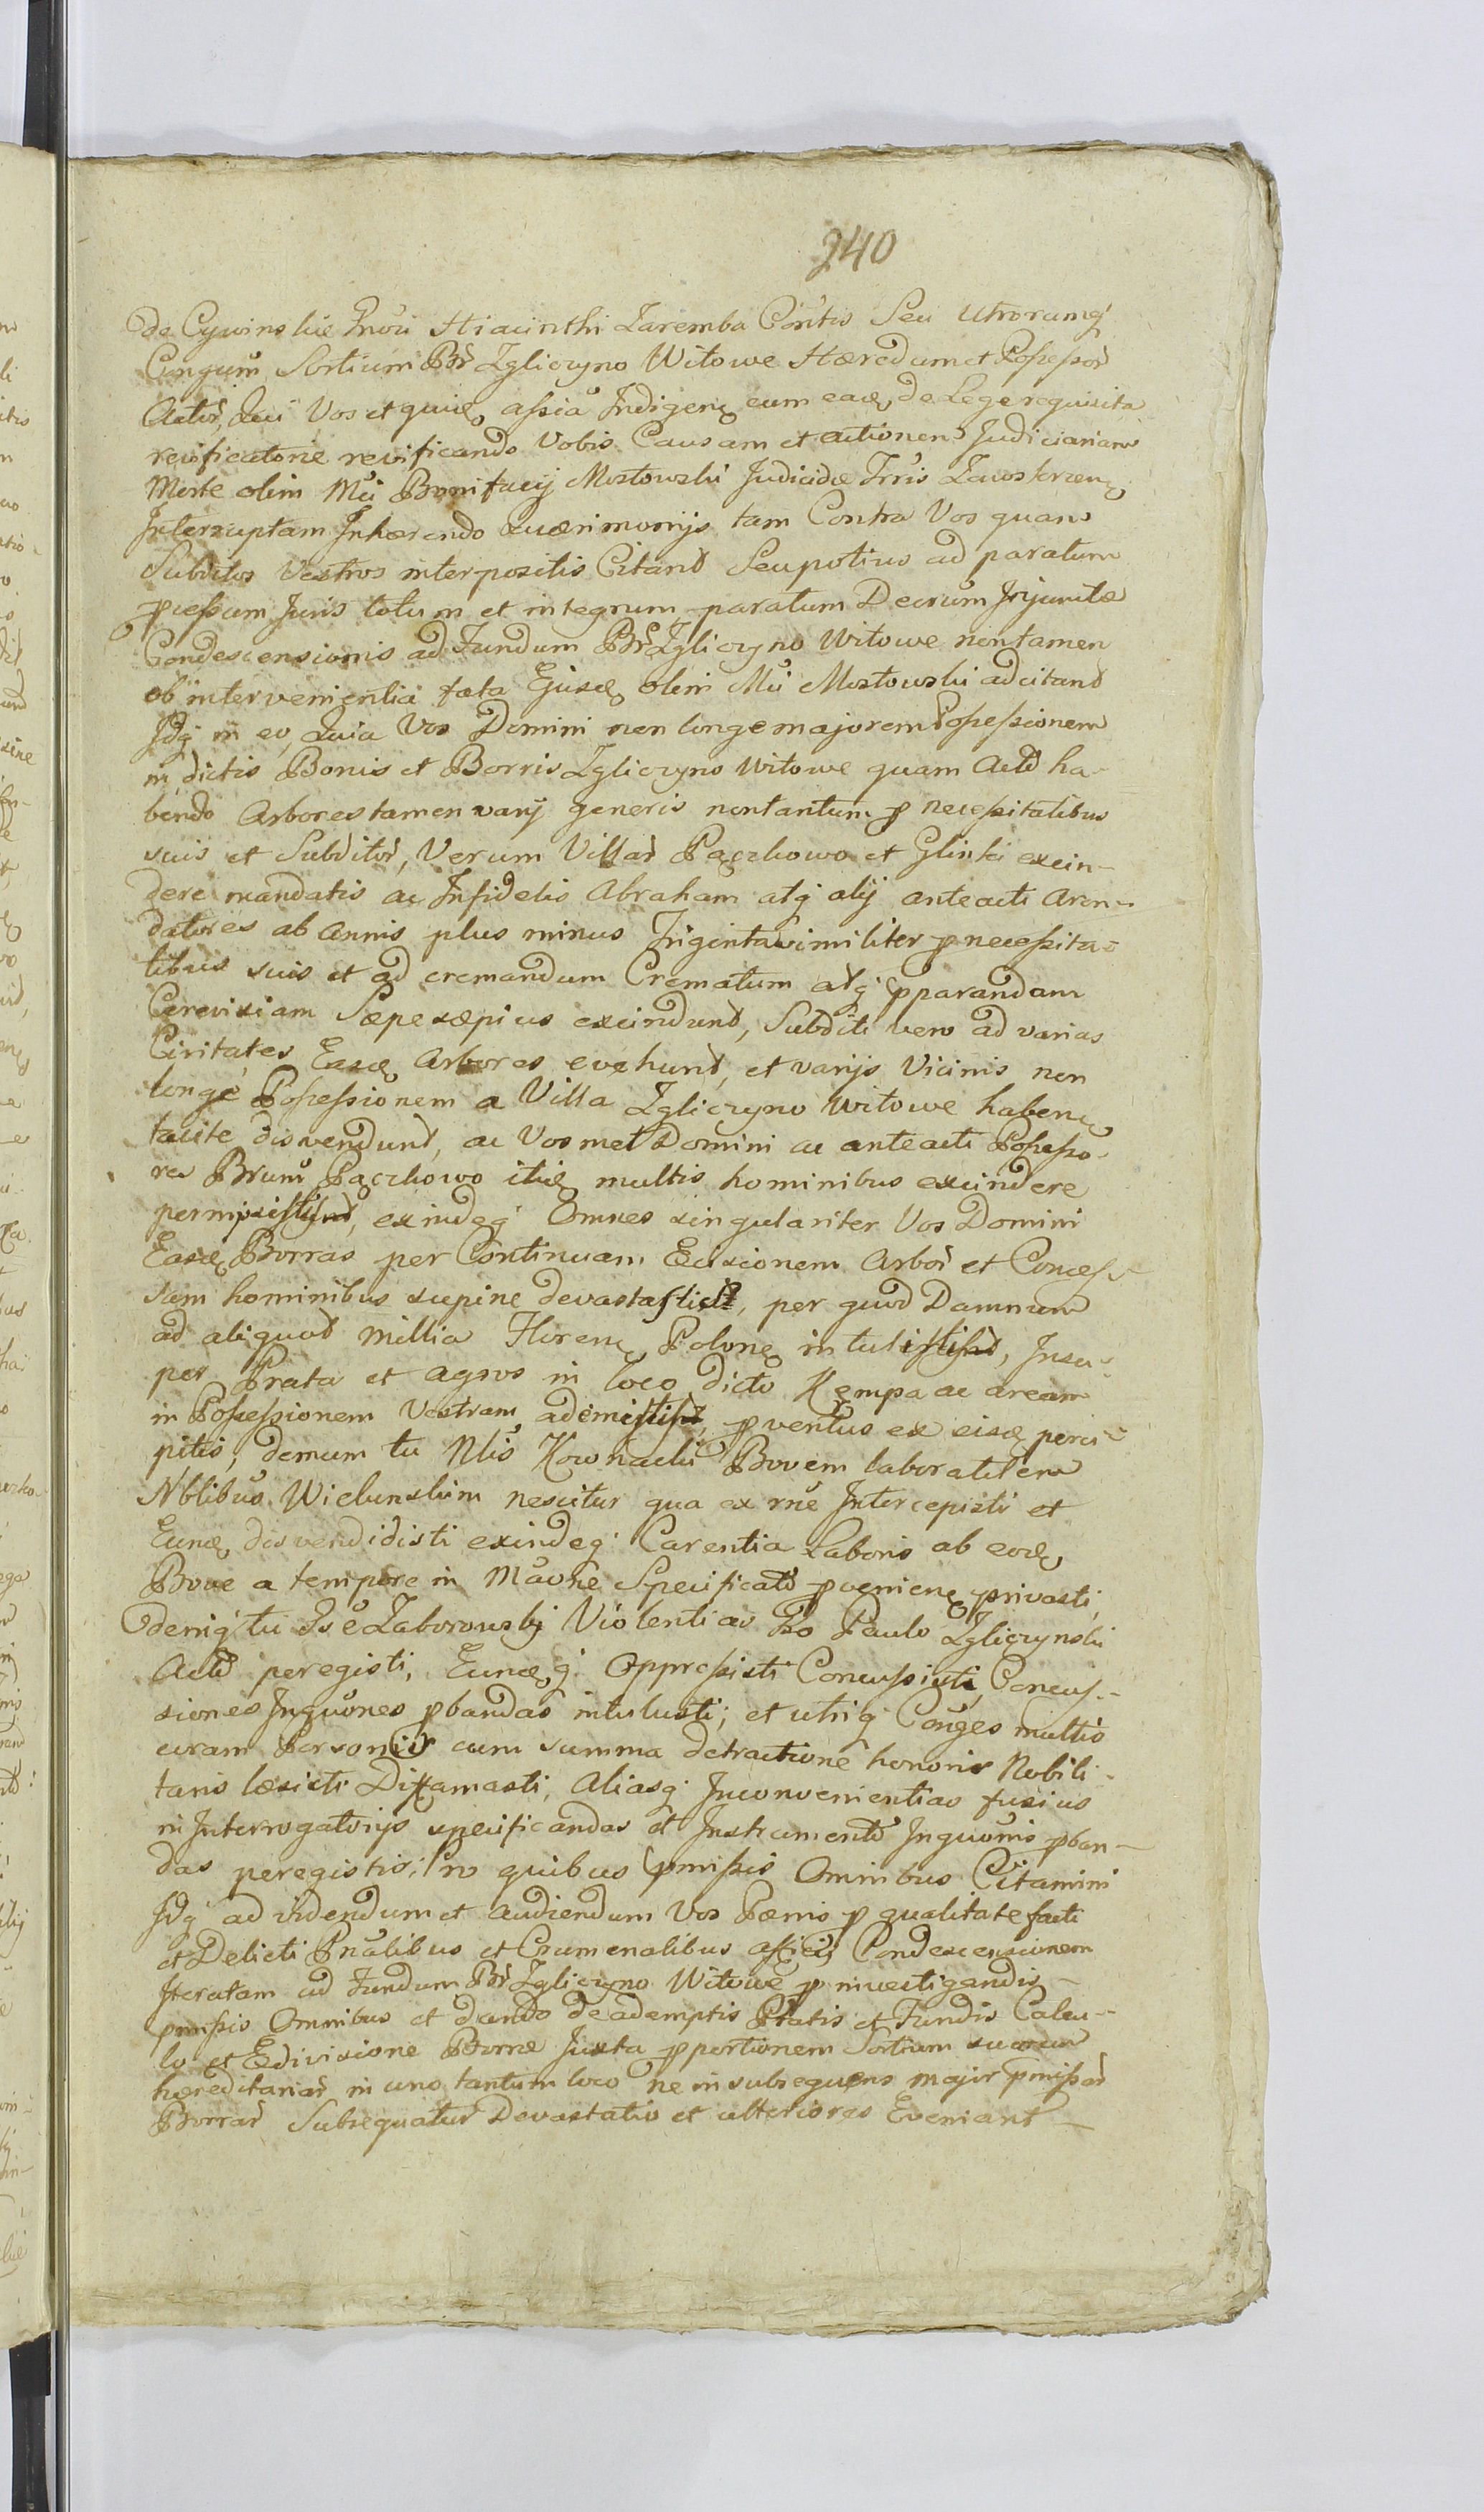 240
De Cywinskie Gnosi Hiacinthi Zaremba Contis Seu Utrorumq
Congum Sortium Bor Zgliczyno Witowe Hæredum et Possessor
Actor, Qui Vos et quiæ assia Indigenę cum eade de Lege requisita
reificatorie reificando Vobis Causam et actionem Judiciariam
Morte olim Mci Bonifacij Mostowski Judicidæ Trris Zawoskrzenę
Interruptam Inhærendo Quærimonijs tam Contra Vos quam
Subditos Vestros interpositis Citand Seu potius ad paratum
pcessum Juris totum et integrum paratum Decrum Injunctæ
Condescensionis ad Fundum Bor Zgliczyno Witowe non tamen
ob intervenientia fata Ejusd olim Mci Mostowski adcitand
Idq in eo, Quia Vos Domini non longe majorem Possessionem
in dictis Bonis et Borris Zgliczyno Witowe quam Acto ha-
bendo Arbores tamen varij generis non tantum p necessitatibus
suis et Subditor, Verum Villar Pączkowo et Glinki excin-
dere mandatis ac Infidelis Abraham atq alij anteacti Aren-
datores ab Annis plus minus Triginta similiter p necessita-
tibus suis et ad cremandum Crematum atq pparandam
Cerevisiam Sæpe sæpius excindunt, Subditi vero ad varias
Civitates Easd Arbores evehunt, et varijs Vicinis non
longe Possessionem a Villa Zgliczyno Witowe habenę
tacite disvendunt, ac Vosmet Domini ac anteacti Possesso-
res Brum Pączkowo itid multis hominibus excindere
permisistis, exindeq Omnes singulariter Vos Domini
Easd Borras per Continuam Excisionem Arbor et Concess-
sam hominibus supine devastastis, per quod Damnum
ad aliquot millia Florenę Polonę intulistis, Insu-
per Prata et agros in loco dicto Kępa ac aream
in Possessionem Vestram ademistis, pventus ex eisd perci-
pitis, demum tu Nlis Kownacki Bovem laboratilem
Nblibus Wielunskim nescitur qua ex rne Intercepisti et
Eund disvendidisti exindeq Carentia Laboris ab eod
Bove a tempore in Mavne Specificato pvenienę privasti
deniq tu Zaborowsky Violentias Paulo Zgliczynski
Acto peregisti, Eundq Oppressisti Concussisti, Concus-
siones Inquones pbandas intulisti; et utriq Conges multis
coram Personis cum summa detractione honoris Nobili-
taris læsisti Diffamasti, Aliasq Inconvenientias fusius
in Interrogatorijs specificandas et Instrumento Inquonis pban-
das peregistis; Pro quibus pmissis Omnibus Citamini
Idq ad videndum et audiendum Vos Pænis p qualitate facti
et Delicti Pnalibus et Crumenalibus affici, Condescensionem
Iteratam ad Fundum Bor Zgliczyno Witowe p investigandis
pmissis Omnibus et dando de ademptis Pratis et Fundis Calcu-
lo et Edivisione Borræ Juxta pportionem Sortium suarum
hæreditariar in uno tantum loco ne in subsequens major pmissar
Borrar Subsequatur Devastatio et ulteriores Eveniant